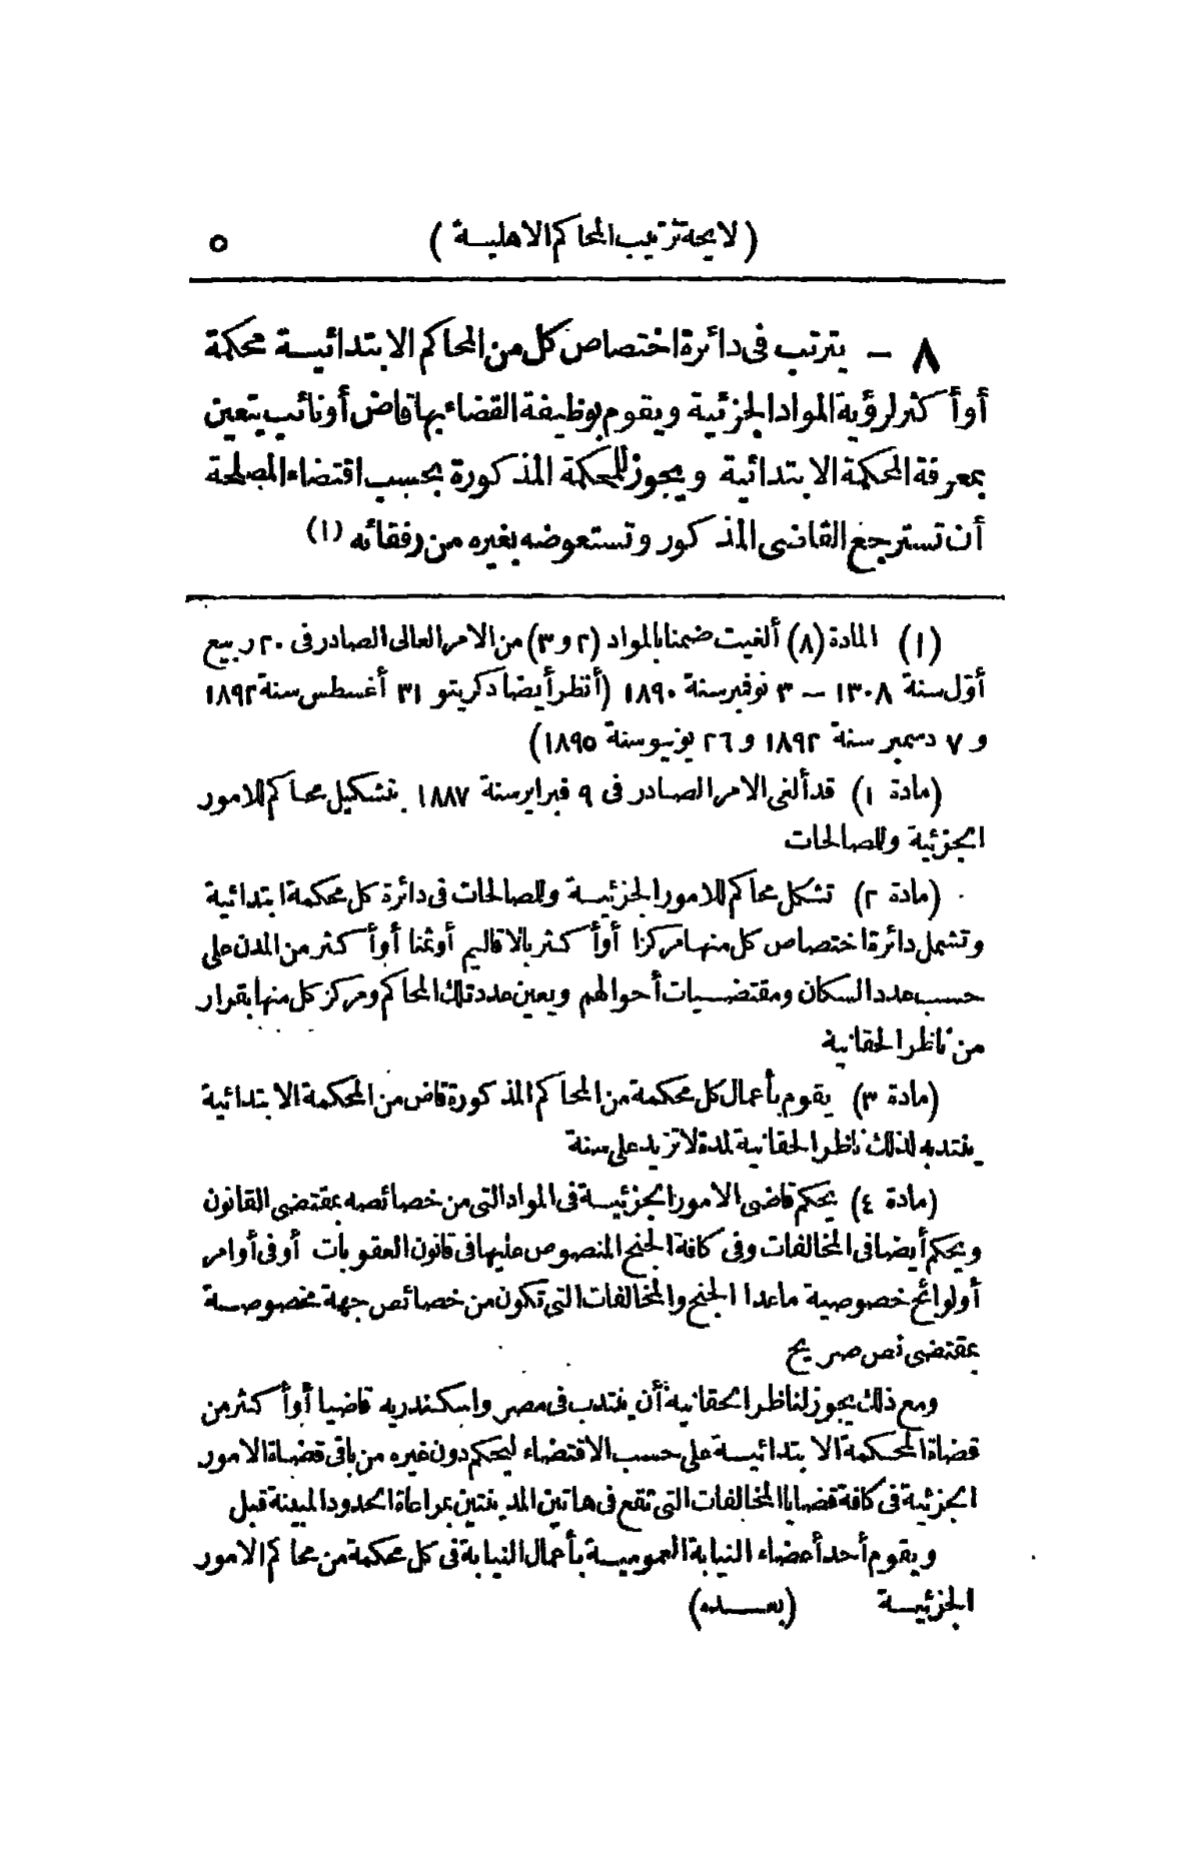 (لايحة ترتيب المحاكم الاهلية) ٥
٨ — يترتب فى دائرة اختصاص كل من المحاكم الابتدائية محكمة
أو أكثر لرؤية المواد الجزئية ويقوم بوظيفة القضاء بها قاض أو نائب يتعين
بمعرفة المحكمة الابتدائية ويجوز للمحكمة المذكورة بحسب اقتضاء المصلحة
أن تسترجع القاضى المذكور وتستعوضه بغيره من رفقائه (١)
(١) المادة (٨) ألغيت ضمنا بالمواد (٢ و٣) من الامر العالى الصادر فى ٢٠ ربيع
أوّل سنة ١٣٠٨ — ٣ نوفمبر سنة ١٨٩٠ (أنظر أيضا دكريتو ٣١ أغسطس سنة ١٨٩٢
و ٧ دسمبر سنة ١٨٩٢ و ٢٦ يونيو سنة ١٨٩٥)
(مادة ١) قد ألغى الامر الصادر فى ٩ فبراير سنة ١٨٨٧ بتشكيل محاكم للامور
الجزئية وللصالحات
(مادة ٢) تشكل محاكم للامور الجزئية وللصالحات فى دائرة كل محكمة ابتدائية
وتشمل دائرة اختصاص كل منها مركزا أو أكثر بالاقاليم أو ثمنا أو أكثر من المدن على
حسب عدد السكان ومقتضيات أحوالهم ويعين عدد تلك المحاكم ومركز كل منها بقرار
من ناظر الحقانية
(مادة ٣) يقوم بأعمال كل محكمة من المحاكم المذكورة قاض من المحكمة الابتدائية
ينتدبه لذلك ناظر الحقانية لمدة لا تزيد على سنة
(مادة ٤) يحكم قاضى الامور الجزئية فى المواد التى من خصائصه بمقتضى القانون
ويحكم أيضا فى المخالفات وفى كافة الجنح المنصوص عليها فى قانون العقوبات أو فى أوامر
أو لوائح خصوصية ما عدا الجنح والمخالفات التى تكون من خصائص جهة مخصوصة
بمقتضى نص صريح
ومع ذلك يجوز لناظر الحقانية أن ينتدب فى مصر واسكندريه قاضيا أو أكثر من
قضاة المحكمة الابتدائية على حسب الاقتضاء ليحكم دون غيره من باقى قضاة الامور
الجزئية فى كافة قضايا المخالفات التى تقع فى هاتين المدينتين بمراعاة الحدود المبينة قبل
ويقوم أحد أعضاء النيابة العمومية بأعمال النيابة فى كل محكمة من محاكم الامور
الجزئية (بعده)